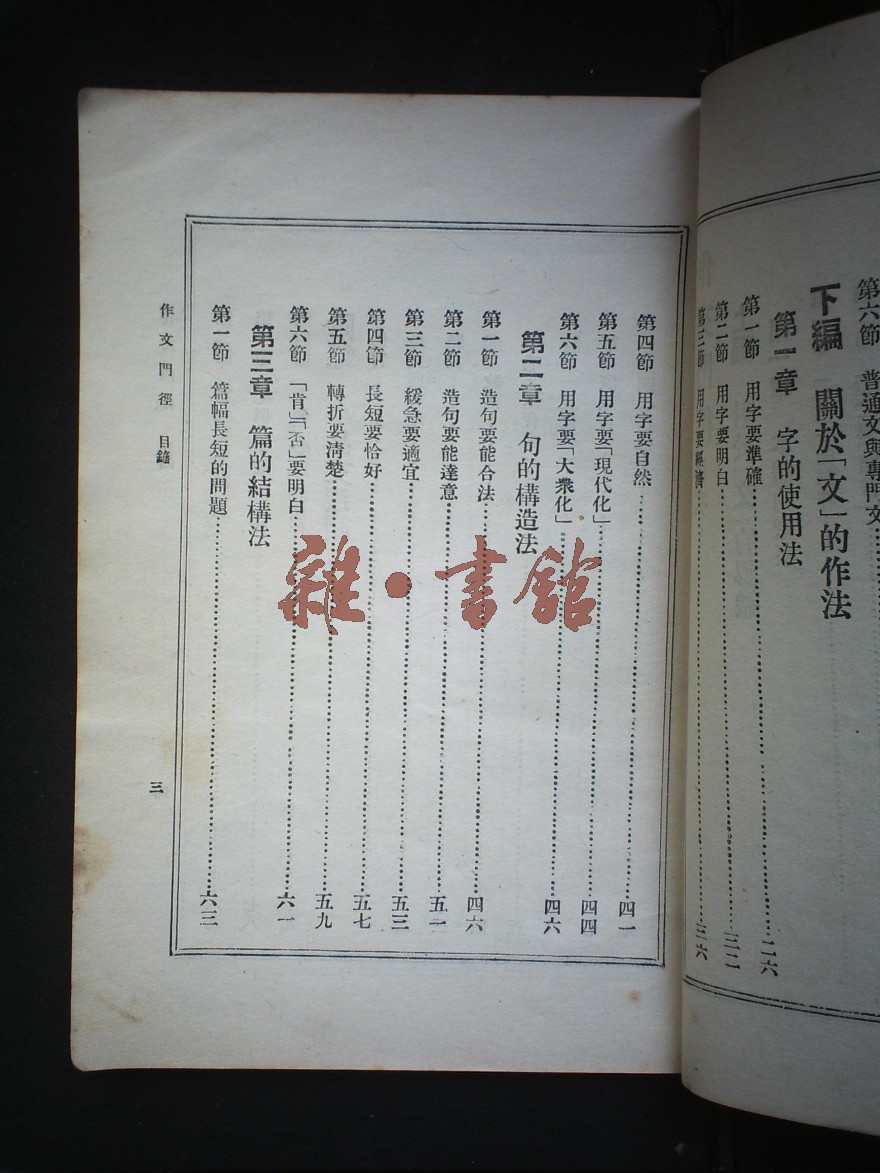 第六節 普通文與專門文
下編 關於「文」的作法
第一章 字的使用法
第一節 用字要準確 二六
第二節 用字要明白 三二
第三節 用字要經濟 三六
第四節 用字要自然 四一
第五節 用字要「現代化」 四四
第六節 用字要「大衆化」 四六
第二章 句的構造法
第一節 造句要能合法 四六
第二節 造句要能達意 五一
第三節 緩急要適宜 五三
第四節 長短要恰好 五七
第五節 轉折要清楚 五九
第六節 「肯」「否」要明白 六一
第三章 篇的結構法
第一節 篇幅長短的問題 六三
作文門徑 目錄
三
雜·書館